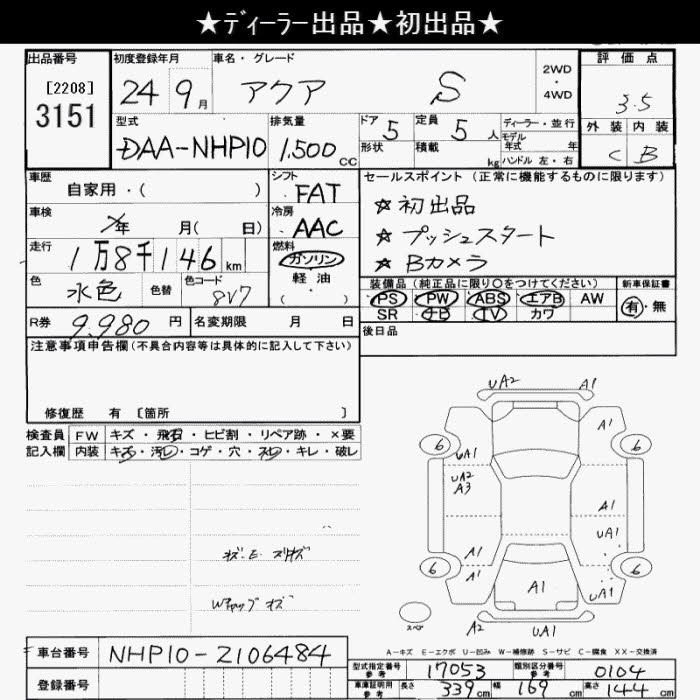 ★ディーラー出品★初出品★
出品番号
[2208]
3151
初度登録年月
24 9月
車名・グレード
アクア S
2WD
・
4WD
評価点
3.5
外装 内装
C B
型式
DAA-NHP10
排気量
1,500 CC
ドア 5
形状
定員 5 人
積載 kg
ディーラー・並行
モデル年式 年
ハンドル 左・右
車歴
自家用・( )
シフト
FAT
セールスポイント(正常に機能するものに限ります)
☆初出品
☆プッシュスタート
☆Bカメラ
車検
年 月( 日)
冷房
AAC
走行
1万8千146km
燃料
ガソリン
軽油
・( )
色
水色
色替
色コード
8V7
装備品(純正品に限り○をつけてください)
PS PW ABS エアB AW
SR ナビ TV カワ
新車保証書
有・無
R券 9,980円
名変期限 月 日
後日品
注意事項申告欄(不具合内容等は具体的に記入して下さい)
修復歴 有 [箇所 ]
検査員
記入欄
FW キズ・飛石・ヒビ割・リペア跡・×要
内装 キズ・汚レ・コゲ・穴・スレ・キレ・破レ
UA2 A1
A1
6 6
UA1
UA2
A3
A1
UA1
A1
6 6
A1
A1
UA1
スペア
A2 UA1
A-キズ E-エクボ U-凹み W-補修跡 S-サビ C-腐食 XX-交換済
車台番号
NHP10-2106484
登録番号
型式指定番号参考 17053
類別区分番号参考 0104
車庫証明用参考 長さ 339cm 幅 169cm 高さ 144cm